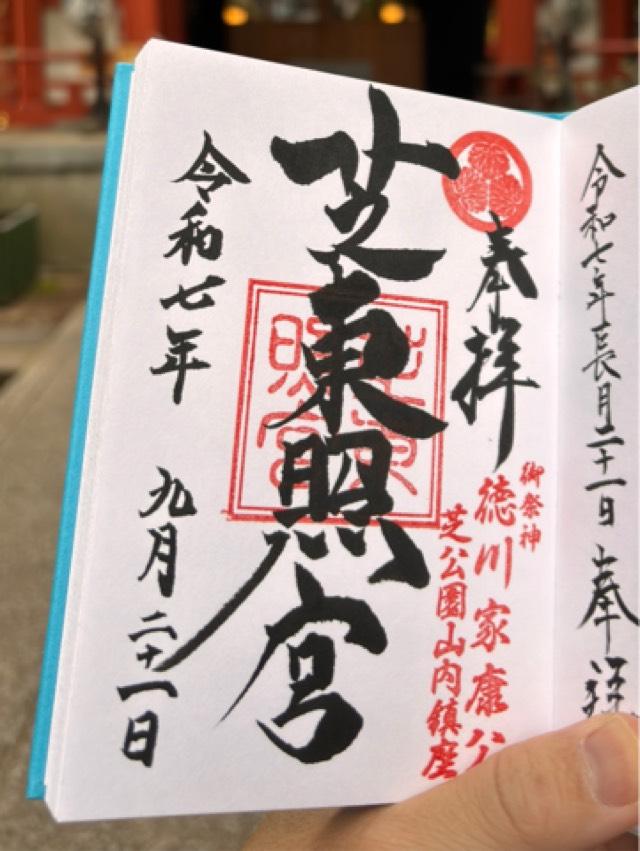 令和七年長月二十一日 奉拝
奉拝
御祭神
徳川家康公
芝公園山内鎮座
芝東照宮
芝東照宮
令和七年
九月二十一日